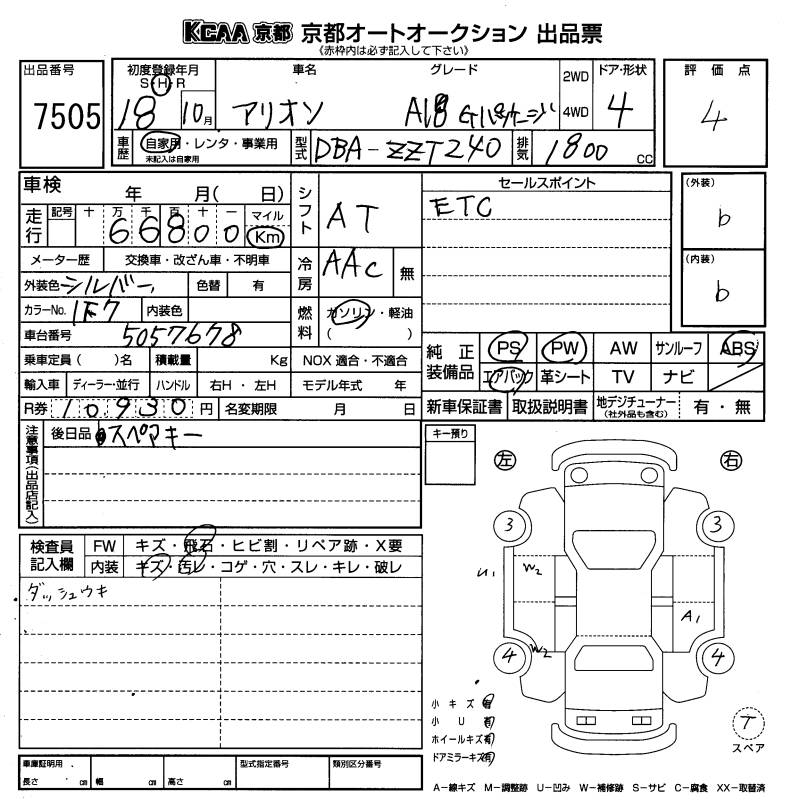 KCAA 京都 京都オートオークション 出品票
《赤枠内は必ず記入して下さい》
出品番号
7505
初度登録年月
S・H・R
18 10月
車名
アリオン
グレード
A18 Gパッケージ
2WD
4WD
ドア・形状
4
評価点
4
車歴
自家用・レンタ・事業用
未記入は自家用
型式
DBA-ZZT240
排気
1800 CC
車検
年 月( 日)
走行
記号 十 万 千 百 十 一 マイル
66800 Km
メーター歴 交換車・改ざん車・不明車
外装色 シルバー 色替 有
カラーNo. 1F7 内装色
車台番号 5057678
乗車定員( )名 積載量 Kg
輸入車 ディーラー・並行 ハンドル 右H・左H
R券 10930円 名変期限 月 日
シフト
AT
冷房
AAC 無
燃料
ガソリン・軽油
( )
NOX 適合・不適合
モデル年式 年
セールスポイント
ETC
(外装)
b
(内装)
b
純正装備品
PS PW AW サンルーフ ABS
エアバック 革シート TV ナビ
新車保証書 取扱説明書 地デジチューナー(社外品も含む) 有・無
注意事項(出品店記入)
後日品 スペアキー
キー預り
左
右
検査員記入欄
FW キズ・飛石・ヒビ割・リペア跡・X要
内装 キズ・汚レ・コゲ・穴・スレ・キレ・破レ
ダッシュウキ
3 3
W2
A1
W2
4 4
小キズ 有
小U 有
ホイールキズ 有
ドアミラーキズ 有
T
スペア
車庫証明用
長さ cm 幅 cm 高さ cm
型式指定番号
類別区分番号
A-線キズ M-調整跡 U-凹み W-補修跡 S-サビ C-腐食 XX-取替済